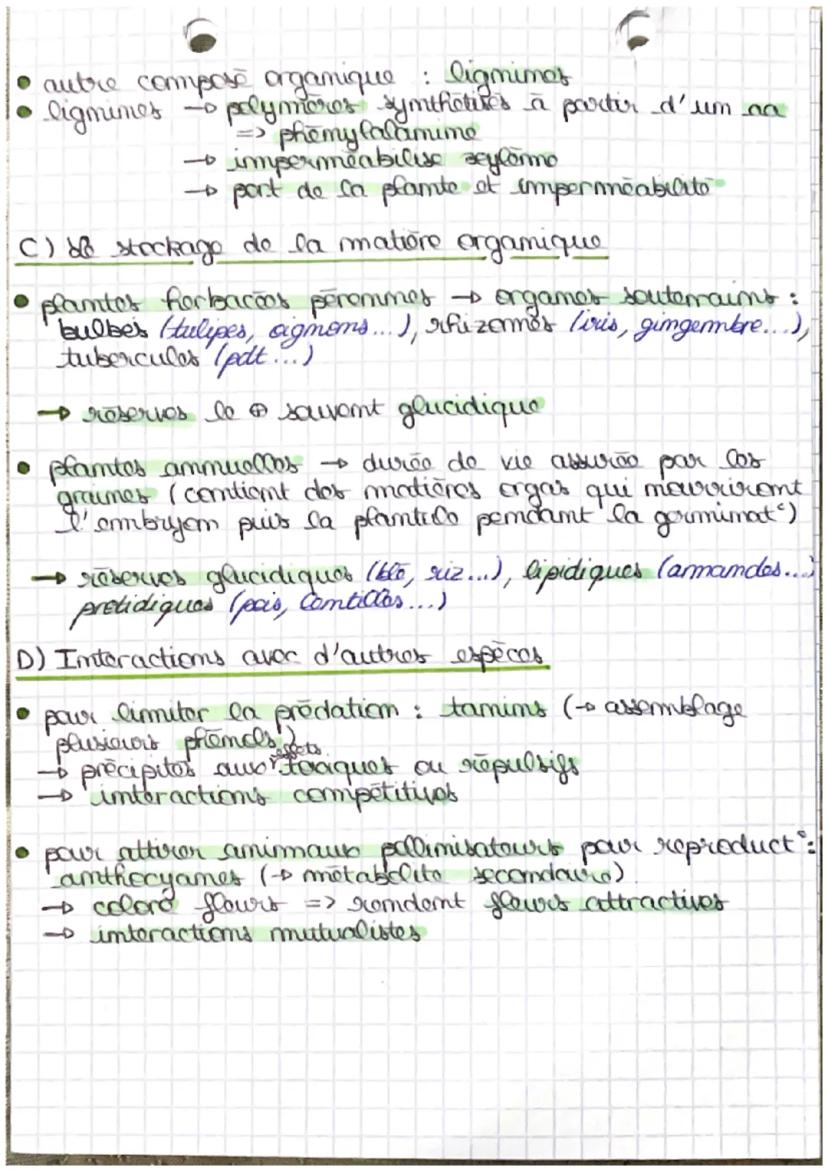 • autre composé organique : lignines
• lignines → polymères synthétisés à partir d'un aa
=> phénylalanine
→ imperméabilise xylème
→ port de la plante et imperméabilité
C) Le stockage de la matière organique
• plantes herbacées pérennes → organes souterrains :
bulbes (tulipes, oignons...), rhizomes (iris, gingembre...),
tubercules (pdt...)
→ réserves le ⊕ souvent glucidique
• plantes annuelles → durée de vie assurée par les
graines (contient des matières orgas qui nourriront
l'embryon puis la plantule pendant la germinat°)
→ réserves glucidiques (blé, riz...), lipidiques (amandes...)
protidiques (pois, lentilles...)
D) Interactions avec d'autres espèces
• pour limiter la prédation : tanins (→ assemblage
plusieurs phénols)
→ précipités aux effets toxiques ou répulsifs
→ interactions compétitives
• pour attirer animaux pollinisateurs pour reproduct° :
anthocyanes (→ métabolite secondaire)
→ coloré fleurs => rendent fleurs attractives
→ interactions mutualistes